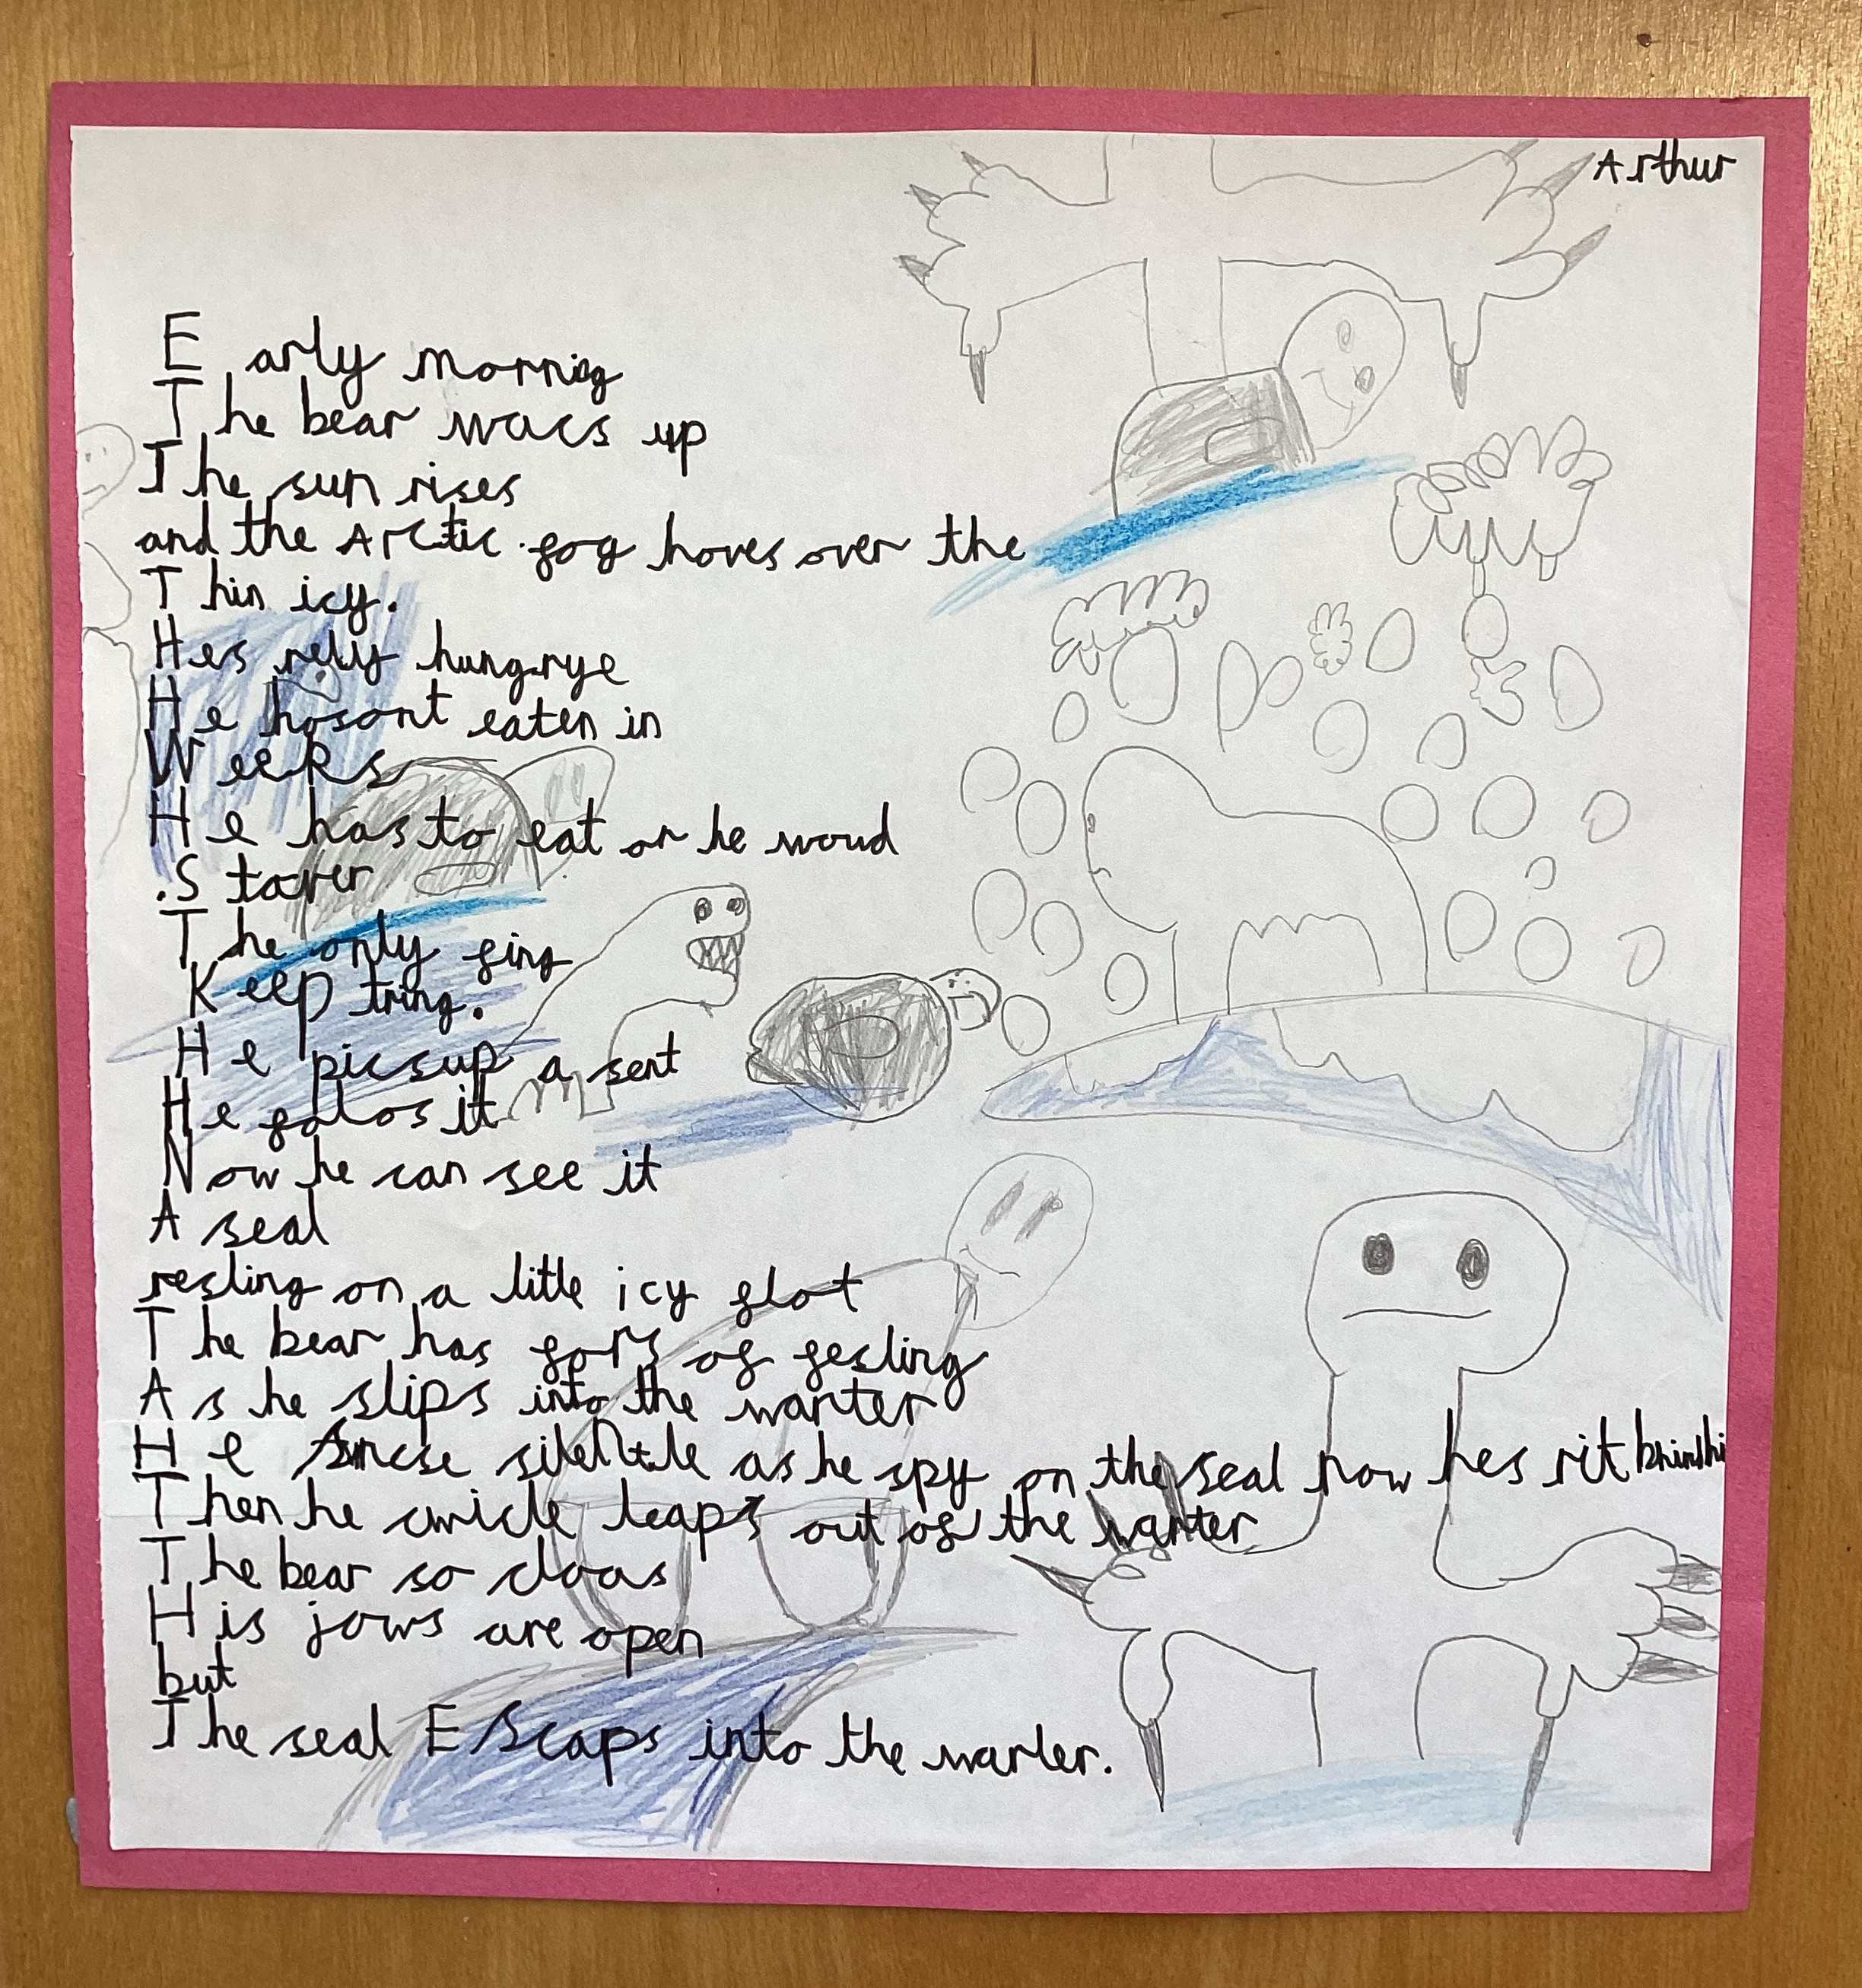 Arthur
Early mornig
The bear wacs up
The sun rises
and the Arctic fog hoves over the
Thin icy.
Hes rely hungrye
He hosont eaten in
Weeks
He has to eat or he woud
.Starer
The only fing
Keep tring.
He picsup a sent
He folos it
Now he can see it
A seal
resling on a litle icy flot
The bear has of fesling
As he slips into the warter
He silentle as he spy on the seal now hes rit
Then he cwicle leaps out of the warter
The bear so cloas
His jows are open
but
The seal Escaps into the warter.